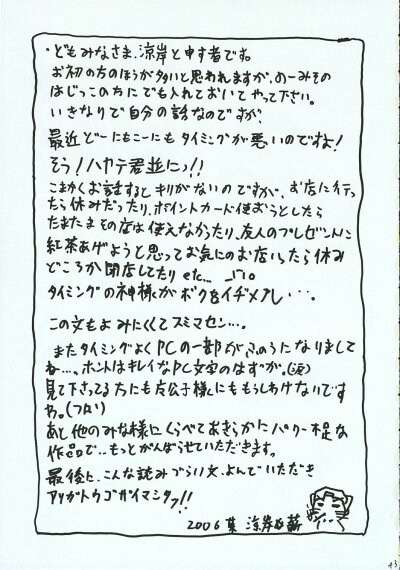 ・どもみなさま、涼岸と申す者です。
お初の方のほうが多いと思われますが、のーみその
はじっこの方にでも入れておいてやって下さい。
いきなりで自分の話なのですが、
最近どーにもこーにもタイミングが悪いのですよ！
そう！ハヤテ君並にっ！！
こまかくお話するとキリがないのですが、お店に行っ
たら休みだったり、ポイントカード使おうとしたら
たまたまその店は使えなかったり、友人のプレゼントに
紅茶あげようと思ってお気にのお店いったら休み
どころか閉店してたり etc... _| ̄|○
タイミングの神様がボクをイヂメテル・・・。
この文もよみにくくてスミマセン…。
またタイミングよくPCの一部が きのうになりまして
ね…、ホントはキレイなPC文字のはずが。(涙)
見て下さってる方にも 公子様にももうしわけないです
わ。
あと他のみな様にくらべてあきらかにパワー不足な
作品で…もっとがんばらせていただきます。
最後に、こんな読みづらい文、よんでいただき
アリガトウゴザイマシタッ！！
2006 夏 涼岸
43